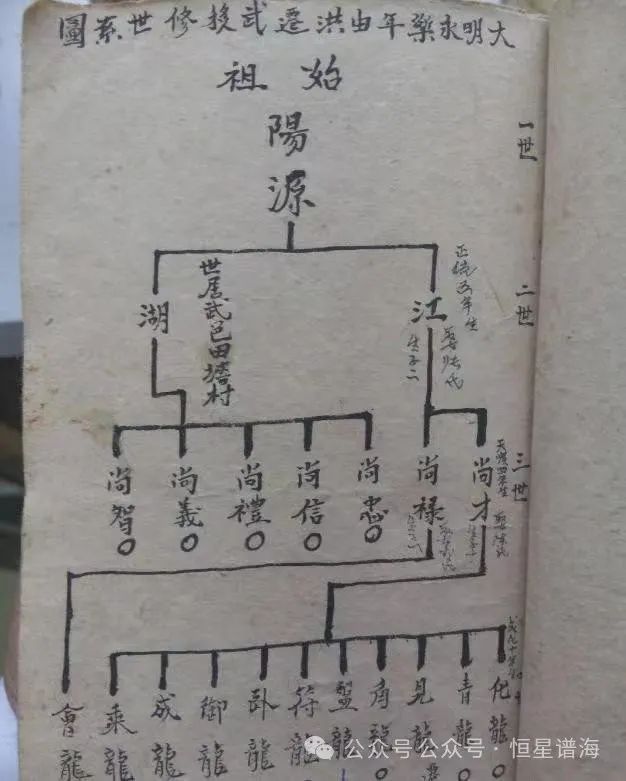 大明永樂年由洪遷武接修世系圖
始祖
一世
陽源
二世
江
正統五年生
生子二
湖
世居武邑田塘村
三世
尚才
尚祿
尚忠
尚信
尚禮
尚義
尚智
化龍
青龍
見龍
角龍
盤龍
符龍
卧龍
御龍
成龍
乘龍
會龍
公众号 公众号·恒星谱海